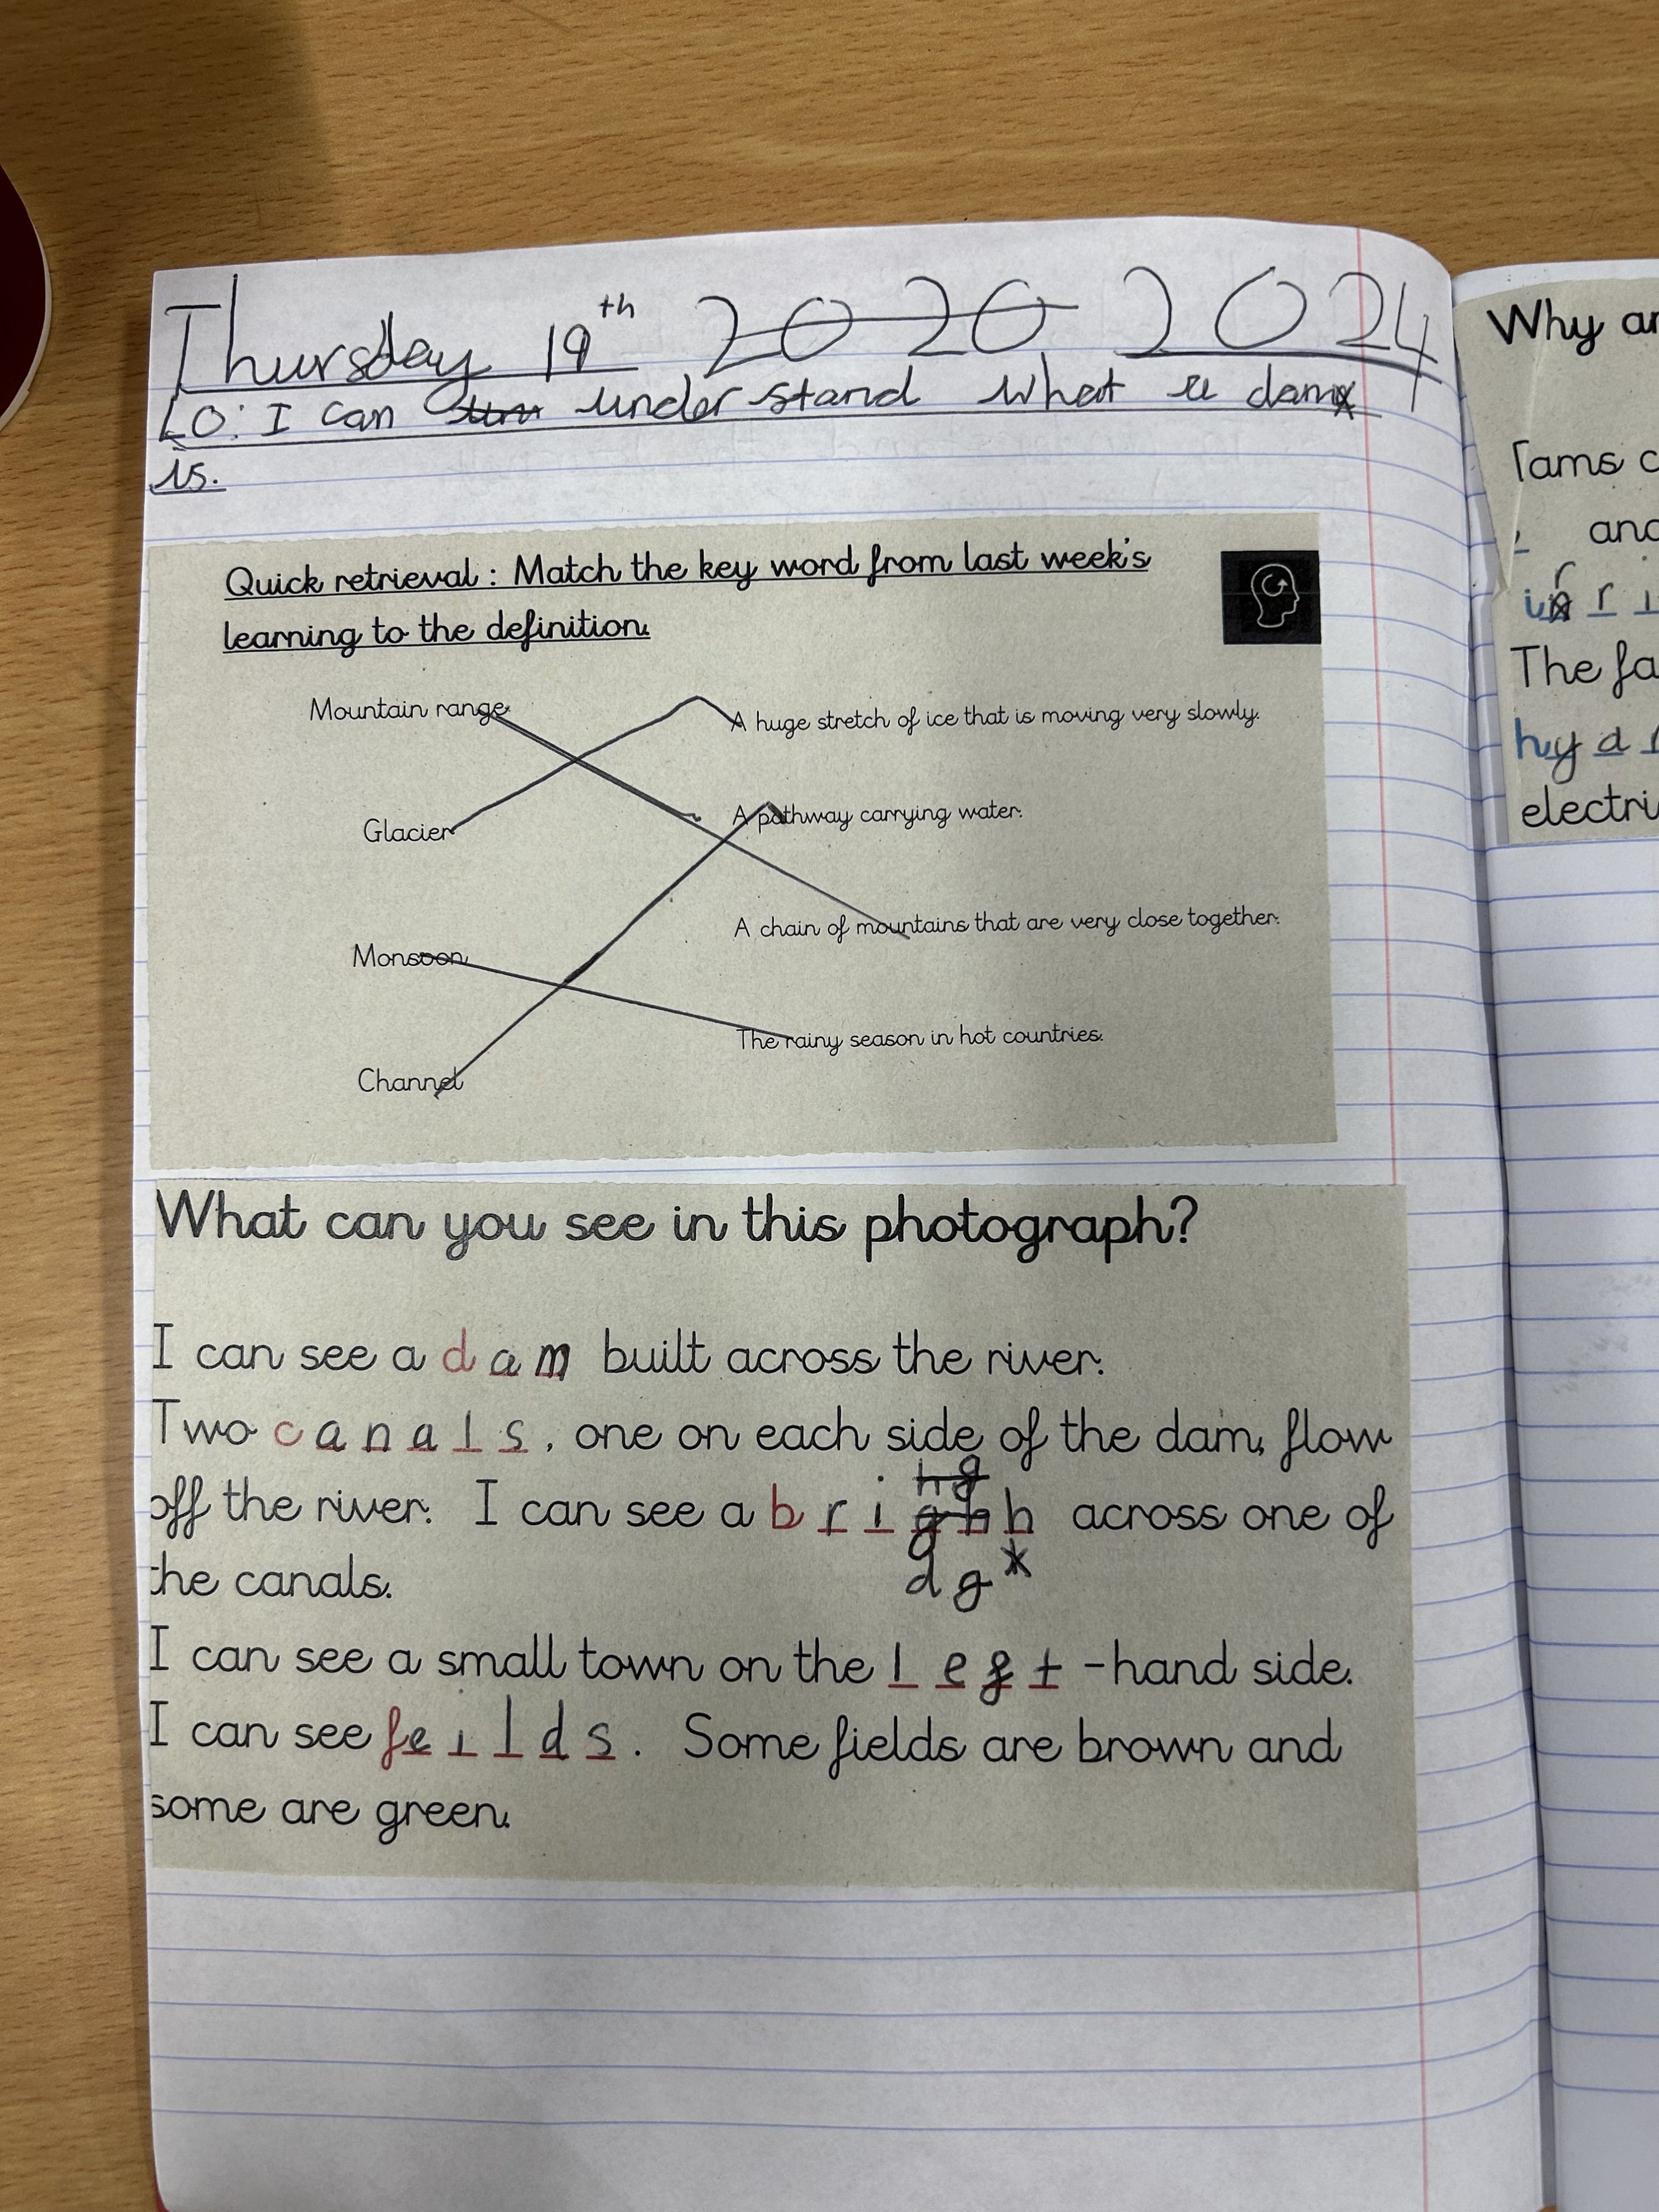 Thursday 19th 2020 2024
LO: I can understand what a dam
is.
Quick retrieval : Match the key word from last week's
learning to the definition.
Mountain range
A huge stretch of ice that is moving very slowly.
Glacier
A pathway carrying water.
A chain of mountains that are very close together.
Monsoon
The rainy season in hot countries.
Channel
What can you see in this photograph?
I can see a dam built across the river.
Two canals, one on each side of the dam, flow
hg
off the river. I can see a brighh across one of
dg
the canals.
I can see a small town on the left-hand side.
I can see feilds. Some fields are brown and
some are green.
Why
and
The
electri